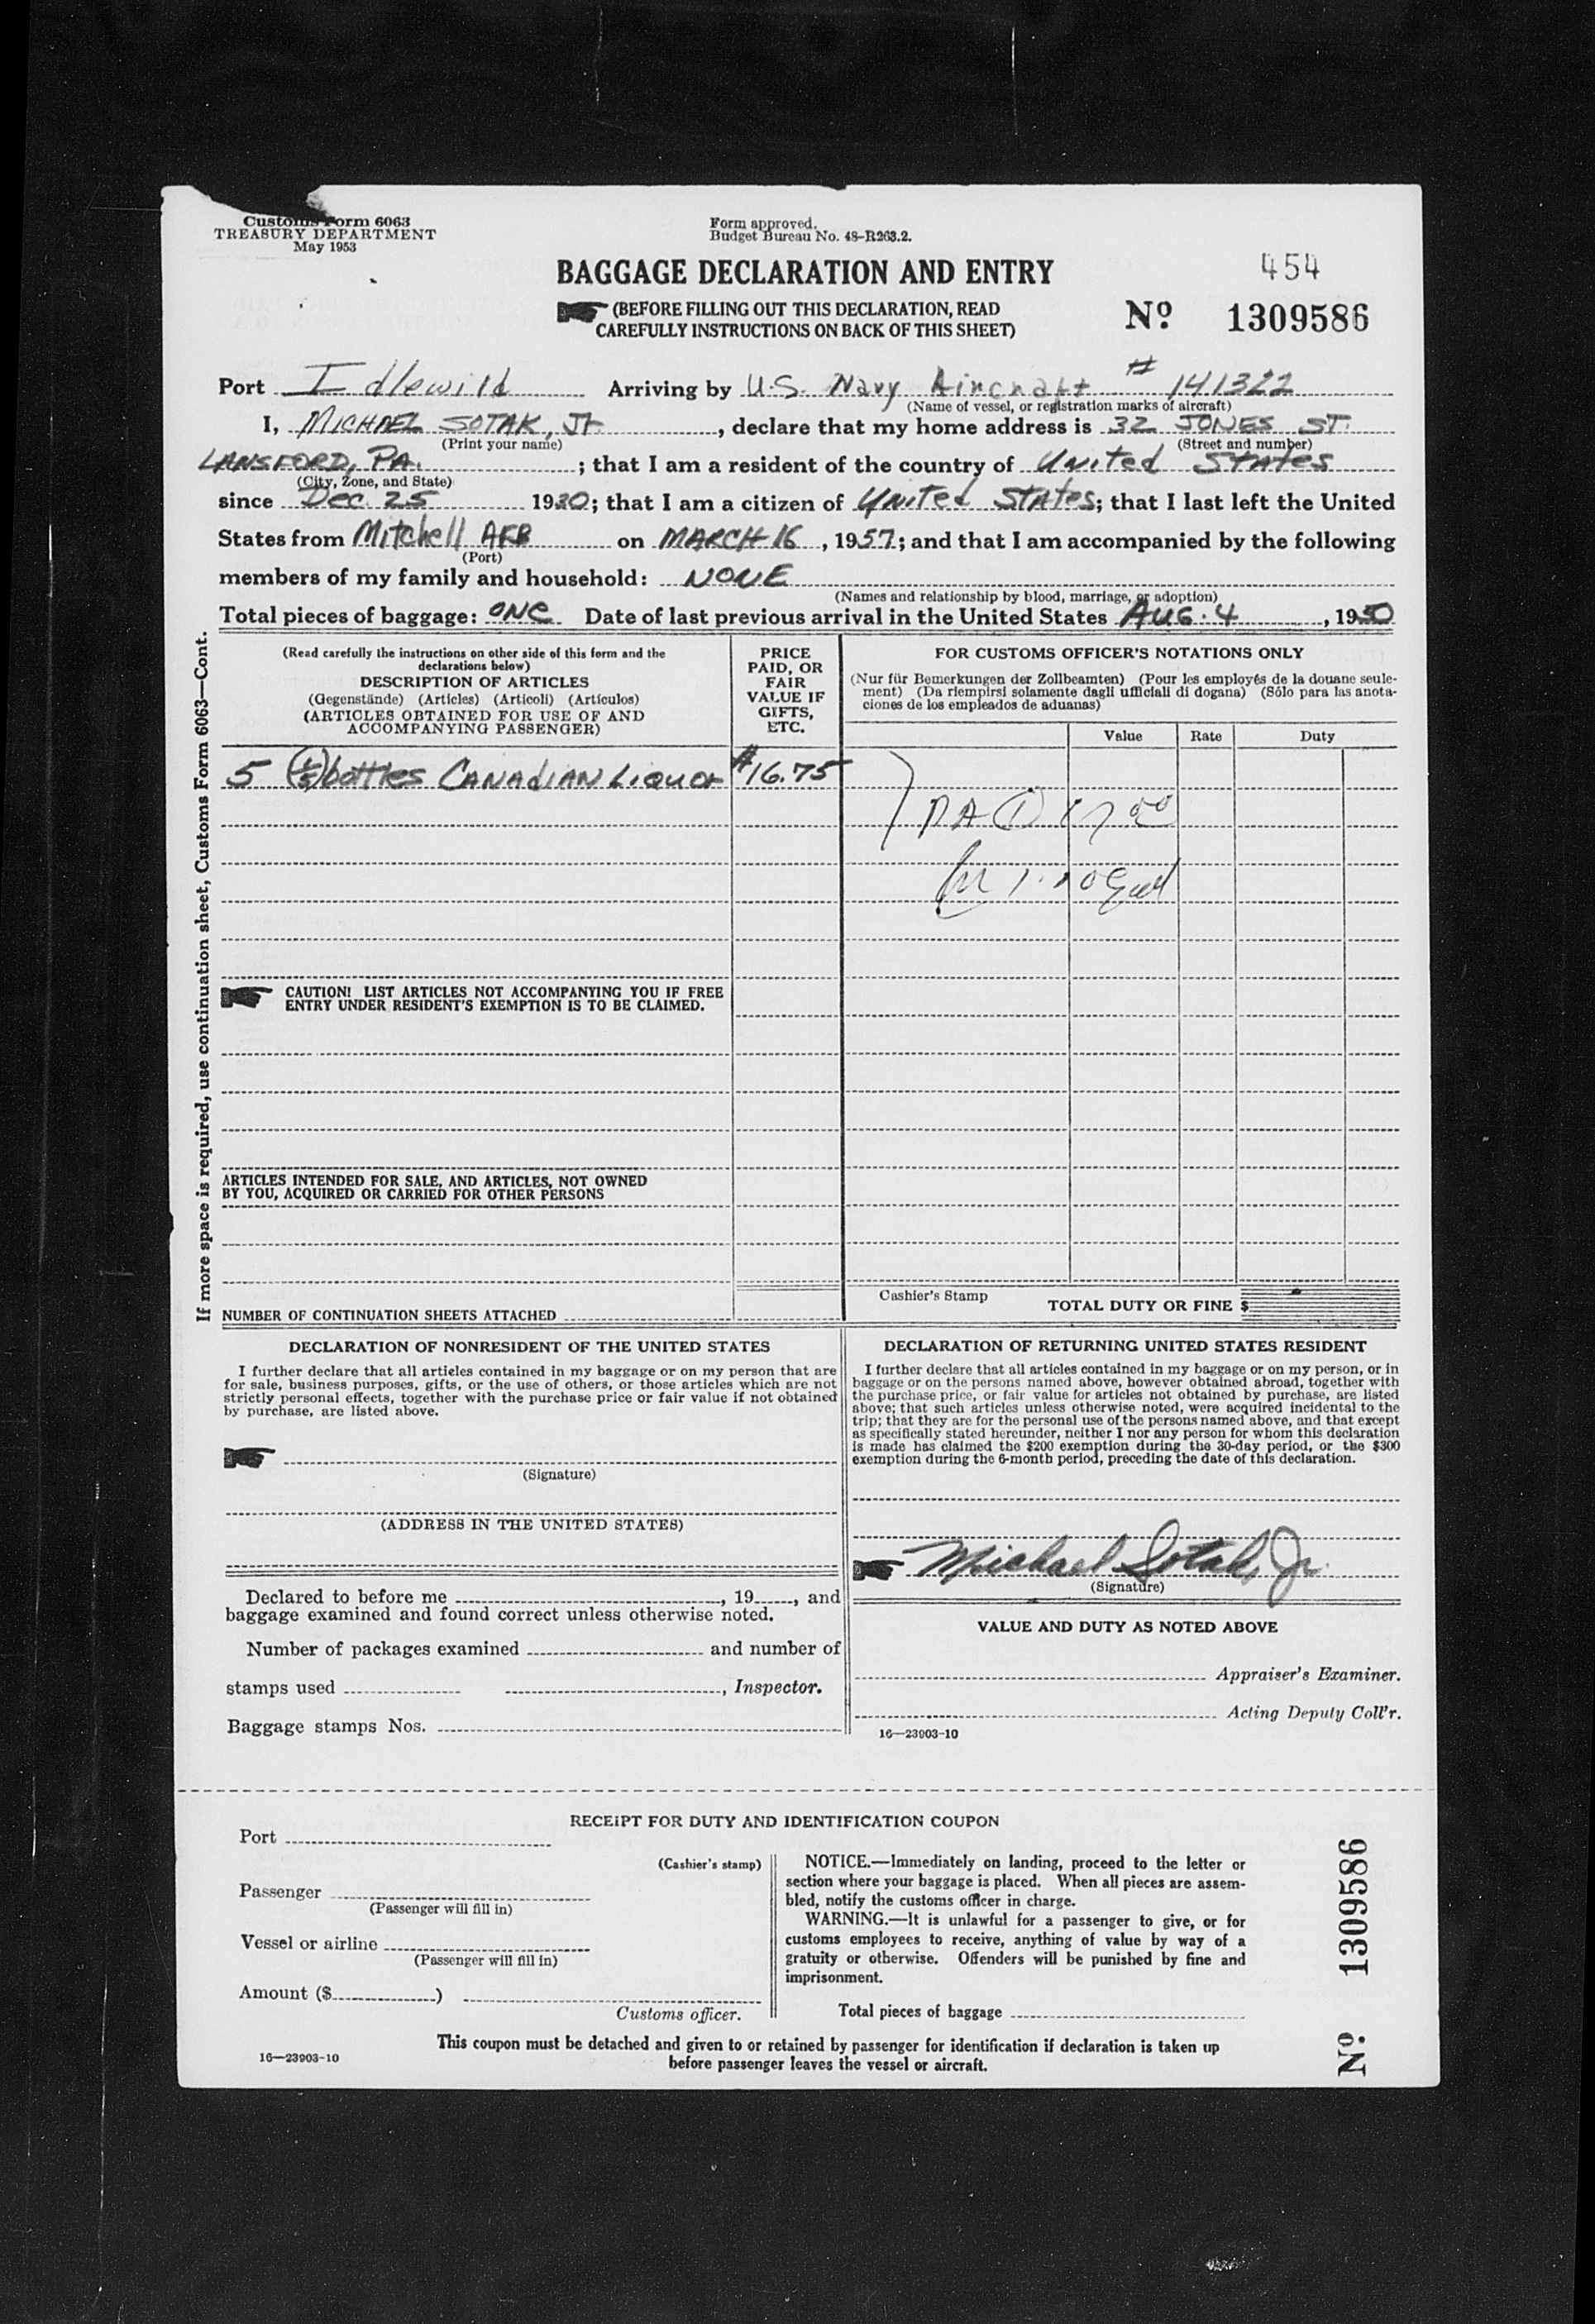 Customs Form 6063
TREASURY DEPARTMENT
May 1953
Form approved.
Budget Bureau No. 48-R263.2.
BAGGAGE DECLARATION AND ENTRY
454
(BEFORE FILLING OUT THIS DECLARATION, READ
CAREFULLY INSTRUCTIONS ON BACK OF THIS SHEET)
Nº 1309586
Port Idlewild Arriving by U.S. Navy Aircraft # 141322
(Name of vessel, or registration marks of aircraft)
I, MICHAEL SOTAK, Jr. , declare that my home address is 32 JONES ST.
(Print your name) (Street and number)
LANSFORD, PA. ; that I am a resident of the country of United States
(City, Zone, and State)
since Dec. 25 1930; that I am a citizen of United States; that I last left the United
States from Mitchell AFB on MARCH 16 , 1957; and that I am accompanied by the following
(Port)
members of my family and household: NONE
(Names and relationship by blood, marriage, or adoption)
Total pieces of baggage: ONE Date of last previous arrival in the United States AUG. 4 , 1950
If more space is required, use continuation sheet, Customs Form 6063—Cont.
(Read carefully the instructions on other side of this form and the
declarations below)
DESCRIPTION OF ARTICLES
(Gegenstände) (Articles) (Articoli) (Artículos)
(ARTICLES OBTAINED FOR USE OF AND
ACCOMPANYING PASSENGER)
PRICE
PAID, OR
FAIR
VALUE IF
GIFTS,
ETC.
FOR CUSTOMS OFFICER'S NOTATIONS ONLY
(Nur für Bemerkungen der Zollbeamten) (Pour les employés de la douane seule-
ment) (Da riempirsi solamente dagli ufficiali di dogana) (Sólo para las anota-
ciones de los empleados de aduanas)
Value Rate Duty
5 (1/5) bottles CANADIAN LIQUOR $16.75
CAUTION! LIST ARTICLES NOT ACCOMPANYING YOU IF FREE
ENTRY UNDER RESIDENT'S EXEMPTION IS TO BE CLAIMED.
ARTICLES INTENDED FOR SALE, AND ARTICLES, NOT OWNED
BY YOU, ACQUIRED OR CARRIED FOR OTHER PERSONS
NUMBER OF CONTINUATION SHEETS ATTACHED
Cashier's Stamp TOTAL DUTY OR FINE $
DECLARATION OF NONRESIDENT OF THE UNITED STATES
I further declare that all articles contained in my baggage or on my person that are
for sale, business purposes, gifts, or the use of others, or those articles which are not
strictly personal effects, together with the purchase price or fair value if not obtained
by purchase, are listed above.
(Signature)
(ADDRESS IN THE UNITED STATES)
Declared to before me , 19 , and
baggage examined and found correct unless otherwise noted.
Number of packages examined and number of
stamps used , Inspector.
Baggage stamps Nos.
DECLARATION OF RETURNING UNITED STATES RESIDENT
I further declare that all articles contained in my baggage or on my person, or in
baggage or on the persons named above, however obtained abroad, together with
the purchase price, or fair value for articles not obtained by purchase, are listed
above; that such articles unless otherwise noted, were acquired incidental to the
trip; that they are for the personal use of the persons named above, and that except
as specifically stated hereunder, neither I nor any person for whom this declaration
is made has claimed the $200 exemption during the 30-day period, or the $300
exemption during the 6-month period, preceding the date of this declaration.
Michael Sotak, Jr.
(Signature)
VALUE AND DUTY AS NOTED ABOVE
Appraiser's Examiner.
Acting Deputy Coll'r.
16—23903-10
RECEIPT FOR DUTY AND IDENTIFICATION COUPON
Port
(Cashier's stamp)
Passenger
(Passenger will fill in)
Vessel or airline
(Passenger will fill in)
Amount ($ )
Customs officer.
NOTICE.—Immediately on landing, proceed to the letter or
section where your baggage is placed. When all pieces are assem-
bled, notify the customs officer in charge.
WARNING.—It is unlawful for a passenger to give, or for
customs employees to receive, anything of value by way of a
gratuity or otherwise. Offenders will be punished by fine and
imprisonment.
Total pieces of baggage
Nº. 1309586
16—23903-10
This coupon must be detached and given to or retained by passenger for identification if declaration is taken up
before passenger leaves the vessel or aircraft.